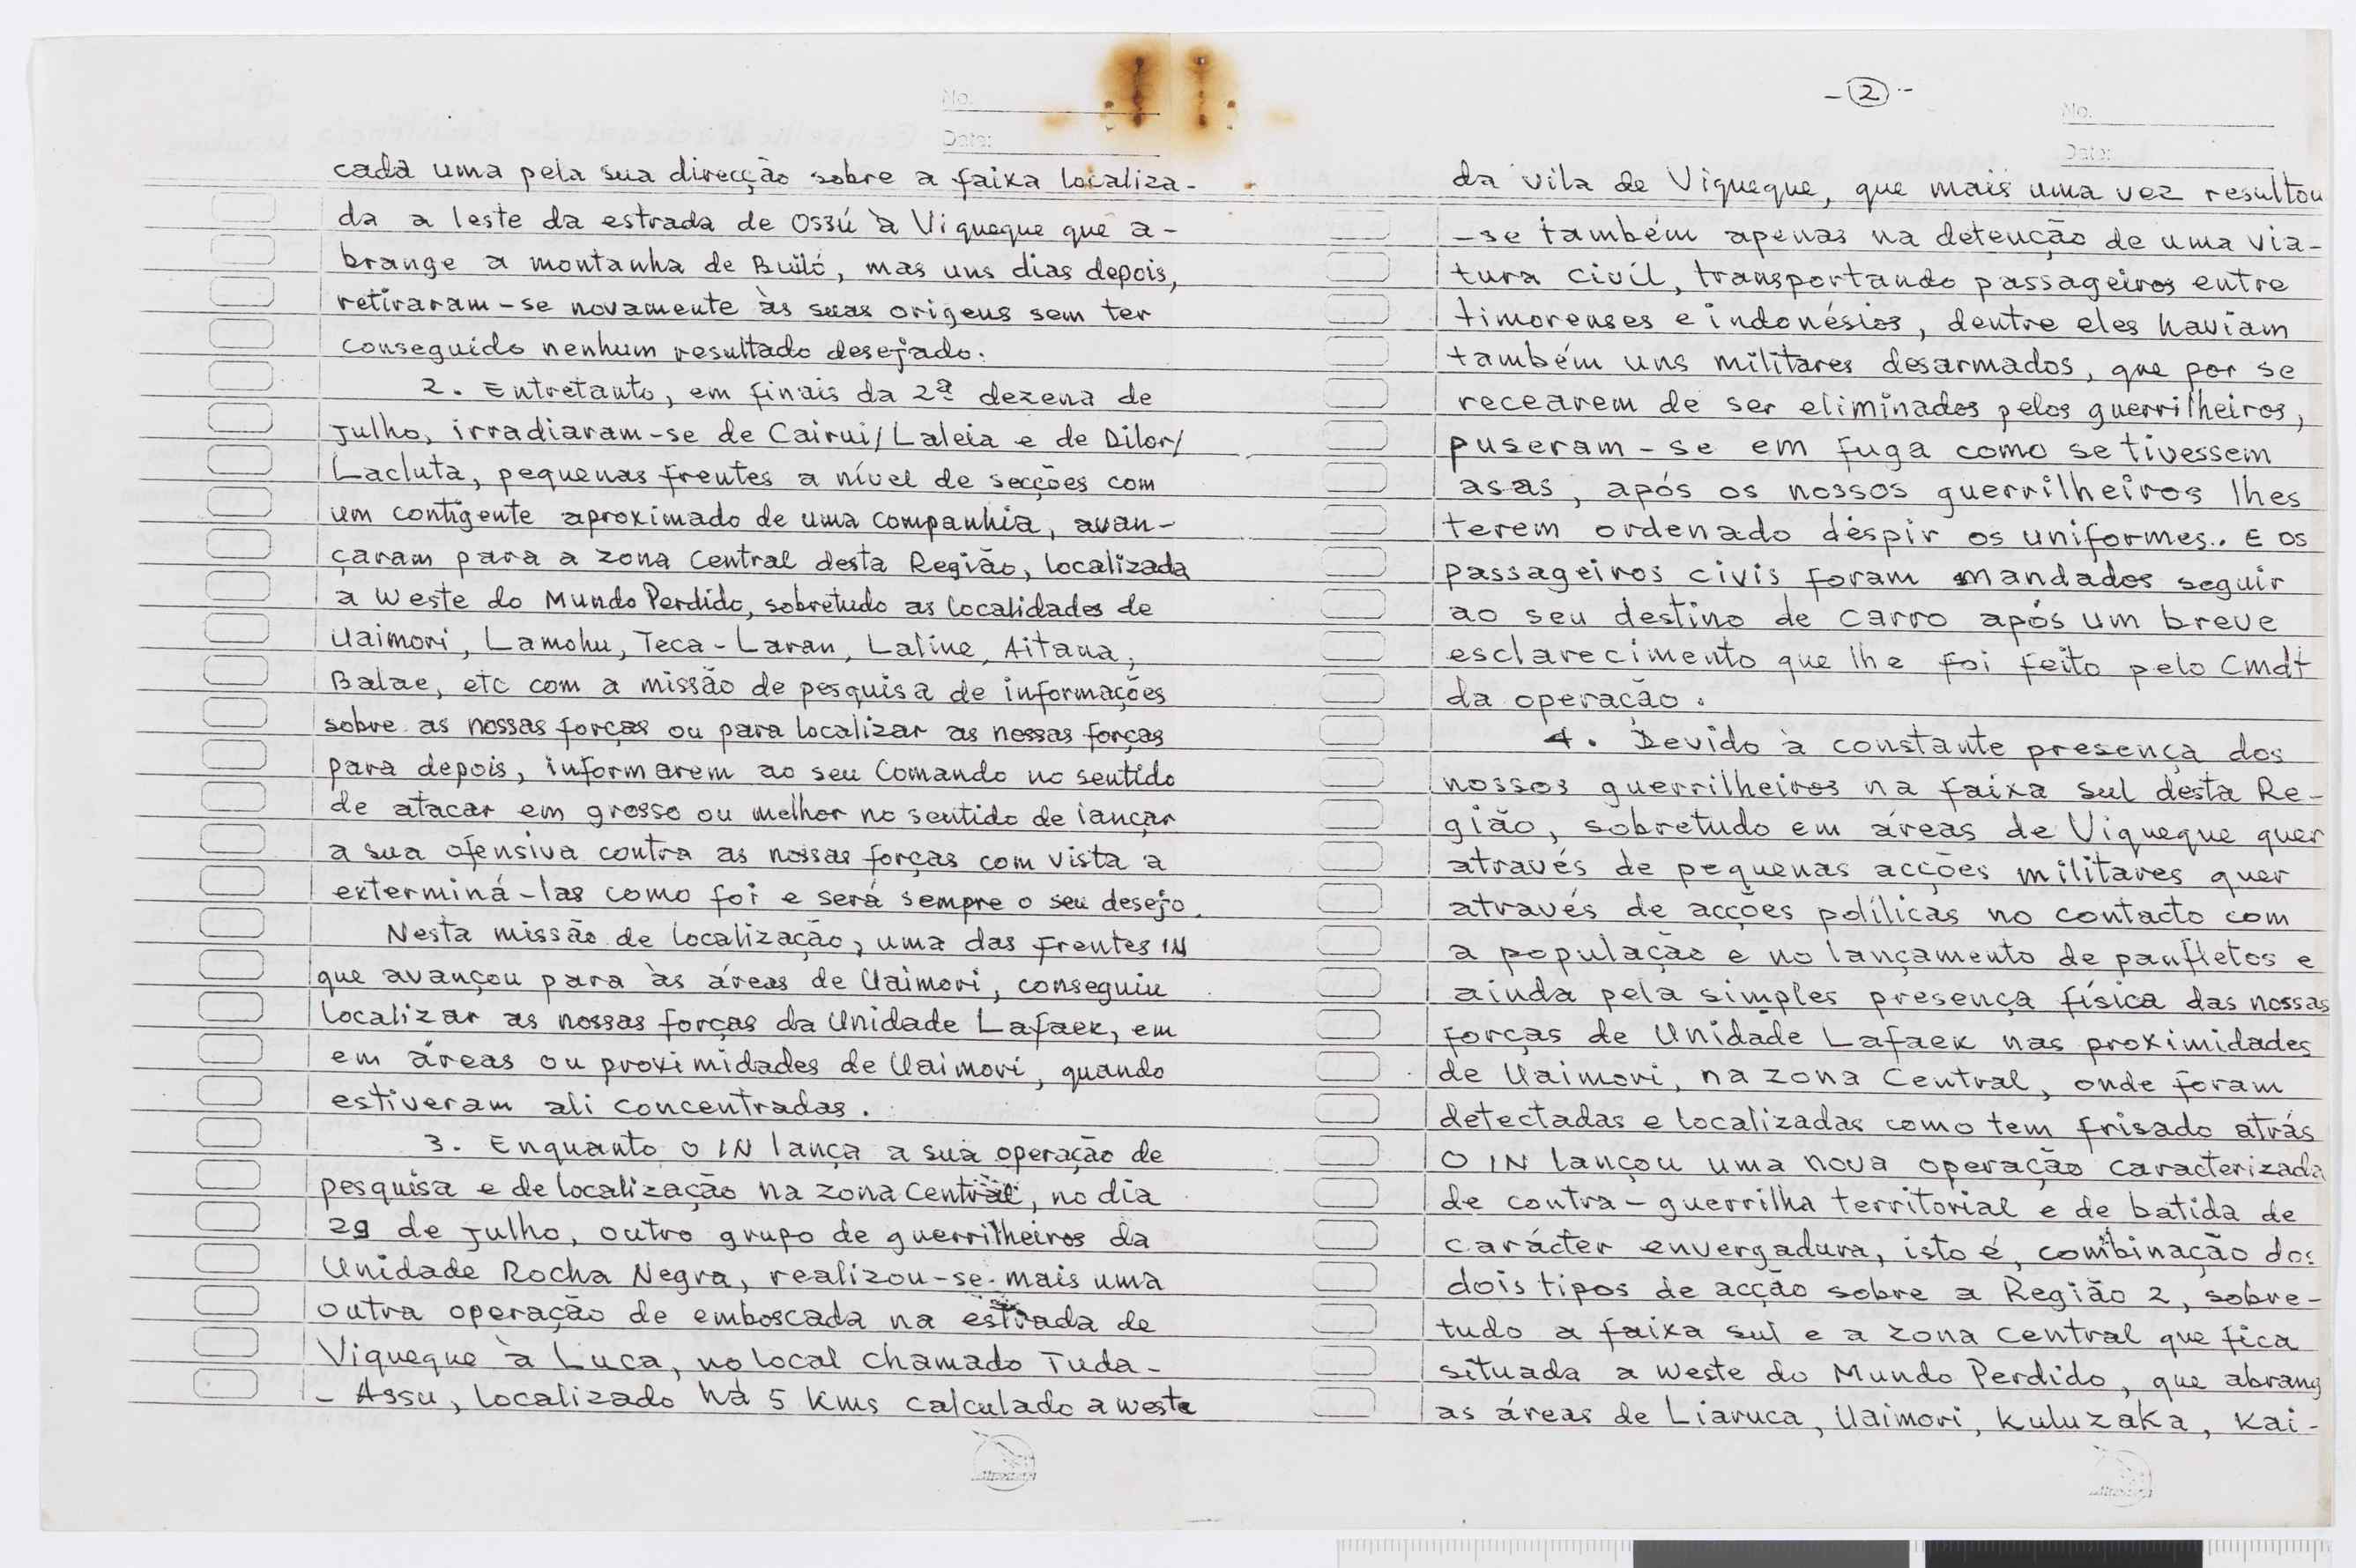 No.
Date:
cada uma pela sua direcção sobre a faixa localiza-
da a leste da estrada de Ossú à Viqueque que a-
brange a montanha de Builó, mas uns dias depois,
retiraram-se novamente às suas origens sem ter
conseguido nenhum resultado desejado.
2. Entretanto, em finais da 2ª dezena de
Julho, irradiaram-se de Cairui/Laleia e de Dilor/
Lacluta, pequenas frentes a nível de secções com
um contigente aproximado de uma companhia, avan-
çaram para a zona Central desta Região, localizada
a Weste do Mundo Perdido, sobretudo as localidades de
Uaimori, Lamohu, Teca-Laran, Laline, Aitana,
Balae, etc com a missão de pesquisa de informações
sobre as nossas forças ou para localizar as nossas forças
para depois, informarem ao seu Comando no sentido
de atacar em grosso ou melhor no sentido de lançar
a sua ofensiva contra as nossas forças com vista a
exterminá-las como foi e será sempre o seu desejo.
Nesta missão de localização, uma das frentes IN
que avançou para às áreas de Uaimori, conseguiu
localizar as nossas forças da Unidade Lafaek, em
em áreas ou proximidades de Uaimori, quando
estiveram ali concentradas.
3. Enquanto o IN lança a sua operação de
pesquisa e de localização na zona Central, no dia
29 de Julho, outro grupo de guerrilheiros da
Unidade Rocha Negra, realizou-se mais uma
outra operação de emboscada na estrada de
Viqueque à Luca, no local chamado Tuda-
-Assu, localizado há 5 Kms calculado a weste
-2-
No.
Date:
da vila de Viqueque, que mais uma vez resultou
-se também apenas na detenção de uma via-
tura civíl, transportando passageiros entre
timorenses e indonésios, dentre eles haviam
também uns militares desarmados, que por se
recearem de ser eliminados pelos guerrilheiros,
puseram-se em fuga como se tivessem
asas, após os nossos guerrilheiros lhes
terem ordenado déspir os uniformes.. E os
passageiros civis foram mandados seguir
ao seu destino de carro após um breve
esclarecimento que lhe foi feito pelo Cmdt
da operação.
4. Devido à constante presença dos
nossos guerrilheiros na faixa sul desta Re-
gião, sobretudo em áreas de Viqueque quer
através de pequenas acções militares quer
através de acções polílicas no contacto com
a população e no lançamento de panfletos e
ainda pela simples presença física das nossas
forças de Unidade Lafaek nas proximidades
de Uaimori, na zona Central, onde foram
detectadas e localizadas como tem frisado atrás
O IN lançou uma nova operação caracterizada
de contra-guerrilha territorial e de batida de
carácter envergadura, isto é, combinação dos
dois tipos de acção sobre a Região 2, sobre-
tudo a faixa sul e a zona Central que fica
situada a weste do Mundo Perdido, que abrang
as áreas de Liaruca, Uaimori, Kuluzaka, Kai-